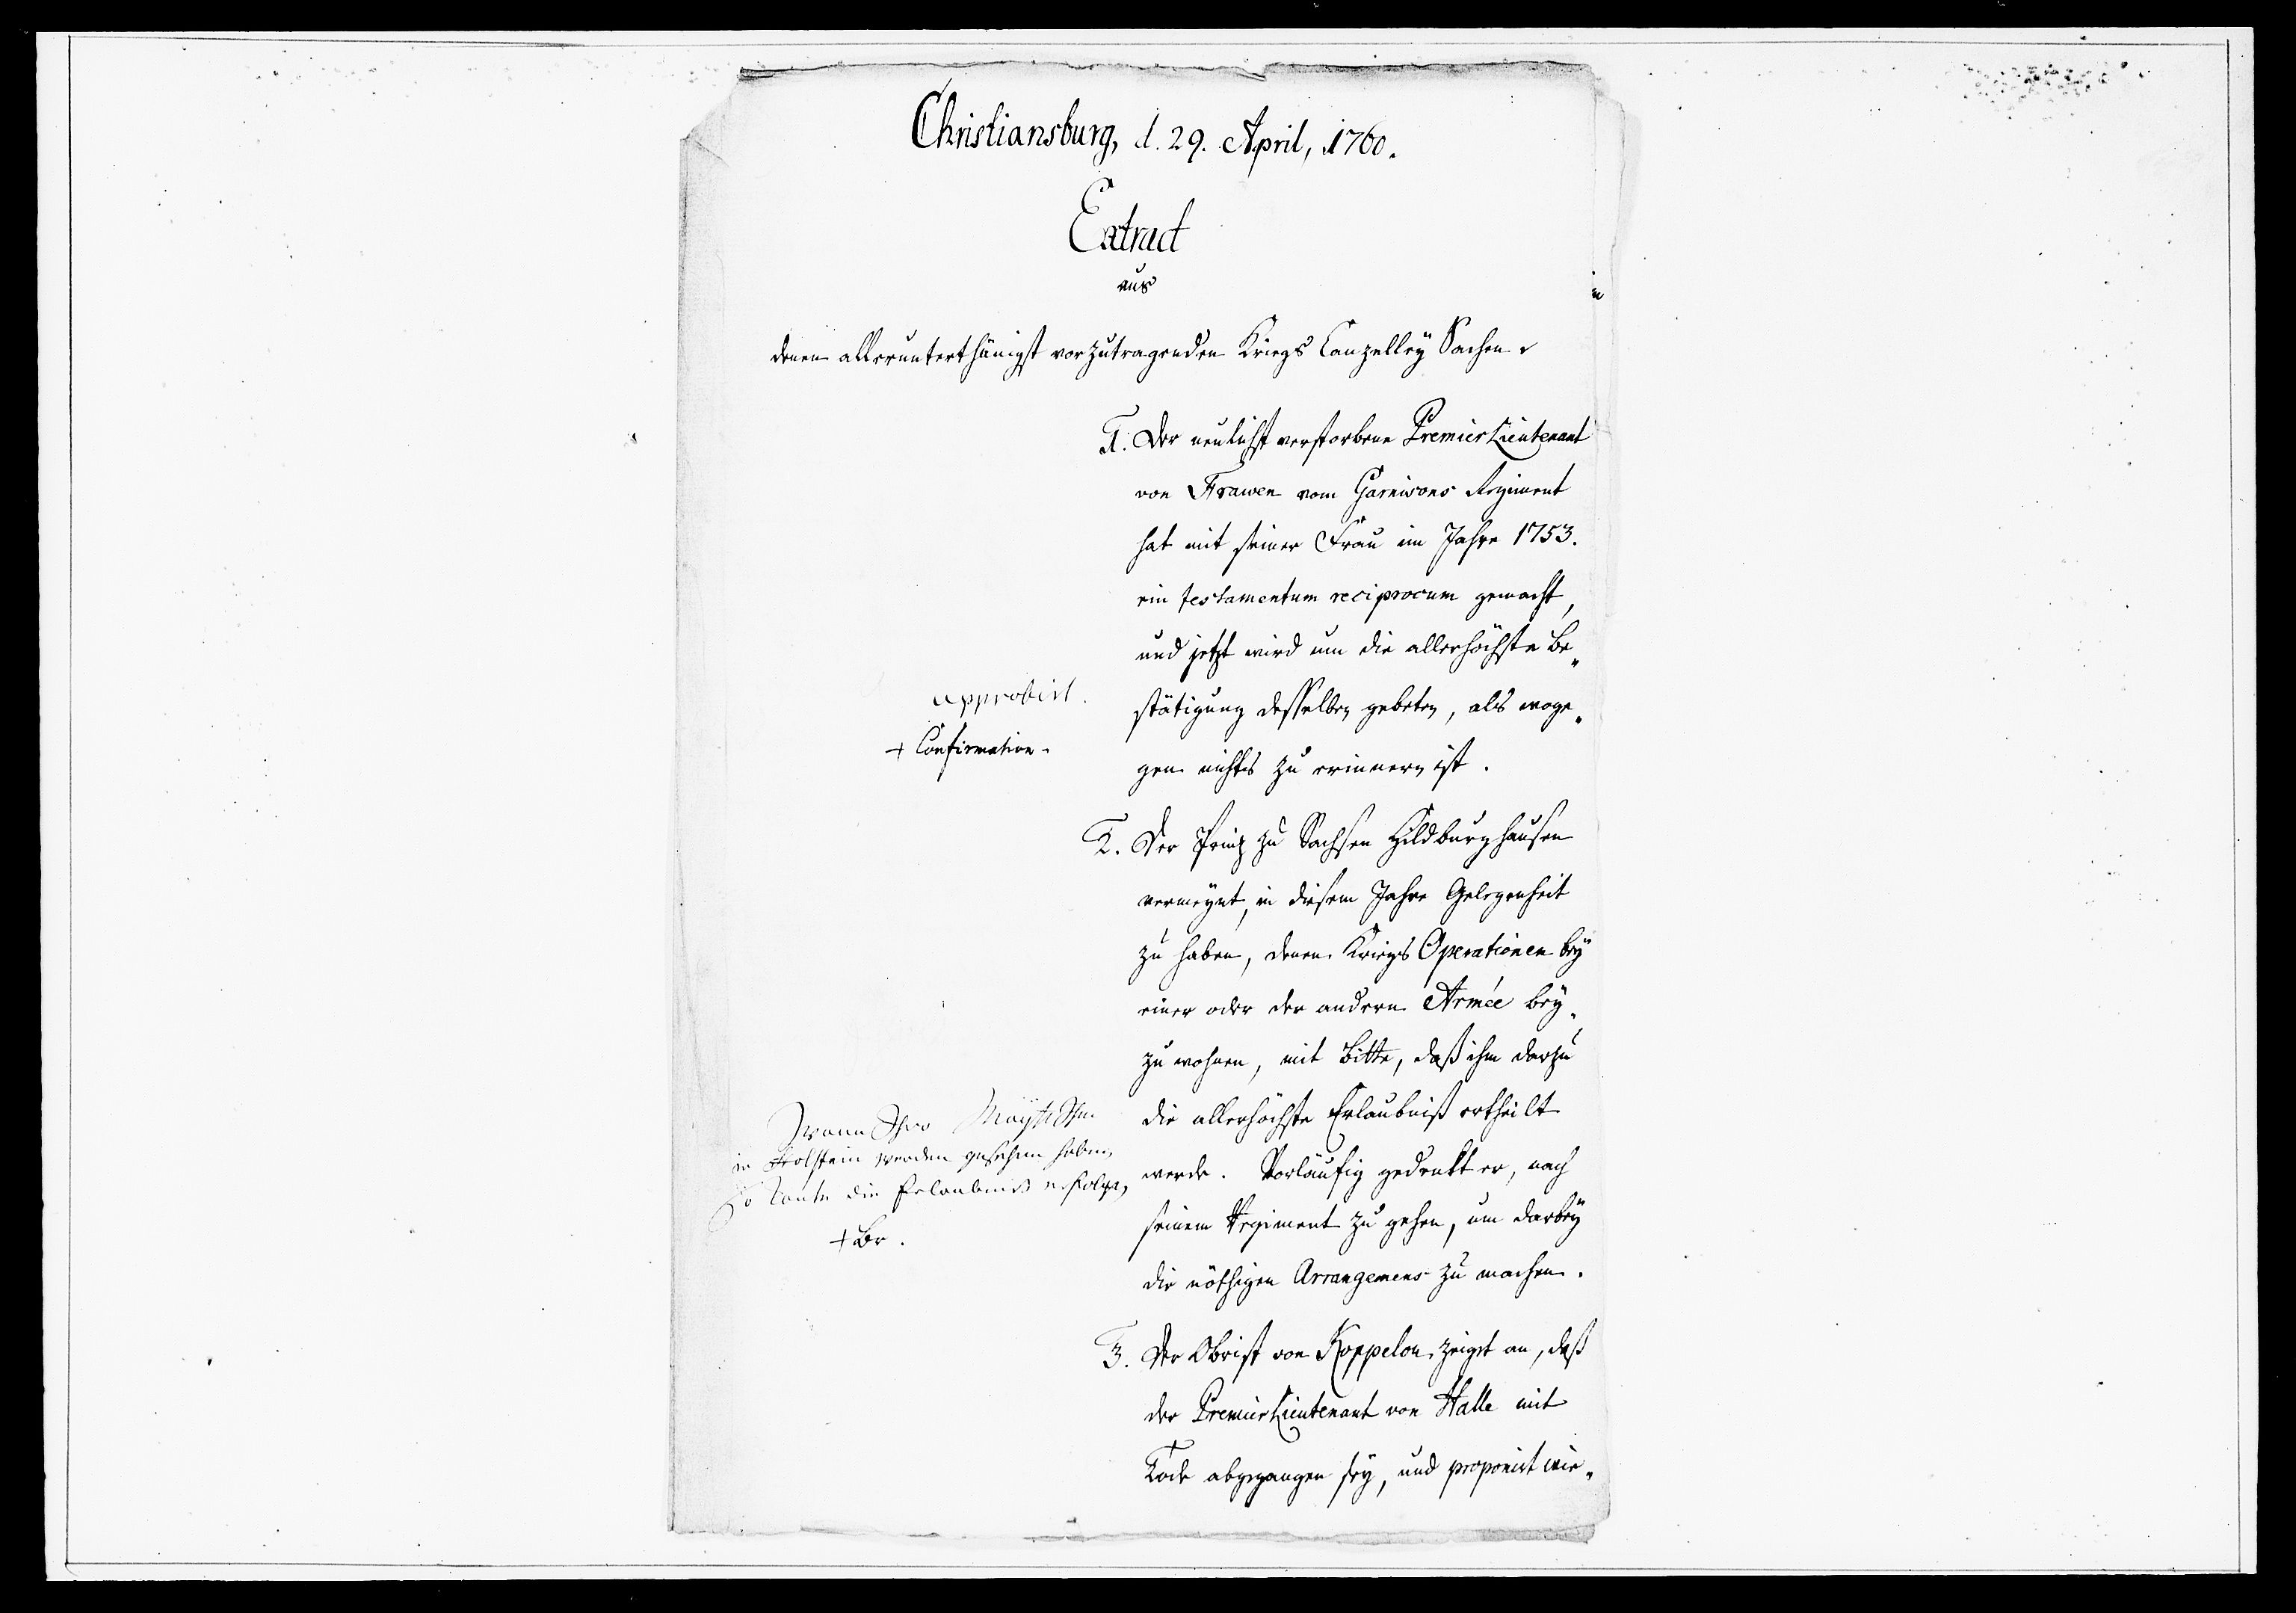 Christiansburg, d. 29. April, 1760.
Extract
aus
denen allerunterthänigst vorzutragenden Kriegs Canzelley Sachen.
1. Der neulichst verstorbene Premier Lieutenant
von Frawen vom Garnisons Regiment
hat mit seiner Frau im Jahre 1753.
ein testamentum reciprocum gemacht,
und jetzt wird um die allerhöchste Be„
stätigung desselben gebeten, als woge„
gen nichts zu erinnern ist.
approbirt.
+ Confirmation.
2. Der Prinz zu Sachsen Hildburghausen
vermeynt, in diesem Jahre Gelegenheit
zu haben, denen Kriegs Operationen bey
einer oder der andern Armée bey„
zu wohnen, mit Bitte, daß ihm darzu
die allerhöchste Erlaubniß ertheilt
werde. Vorläufig gedenkt er, nach
seinem Regiment zu gehen, um darbey
die nöthigen Arrangemens zu machen.
Wann Ihro Mayst
in Holstein werden gesehen haben,
so könte die Erlaubniß erfolgen,
+ Br.
3. Der Obrist von Koppelon zeigt an, daß
der Premier Lieutenant von Halle mit
Tode abgegangen sey, und proponirt wie„